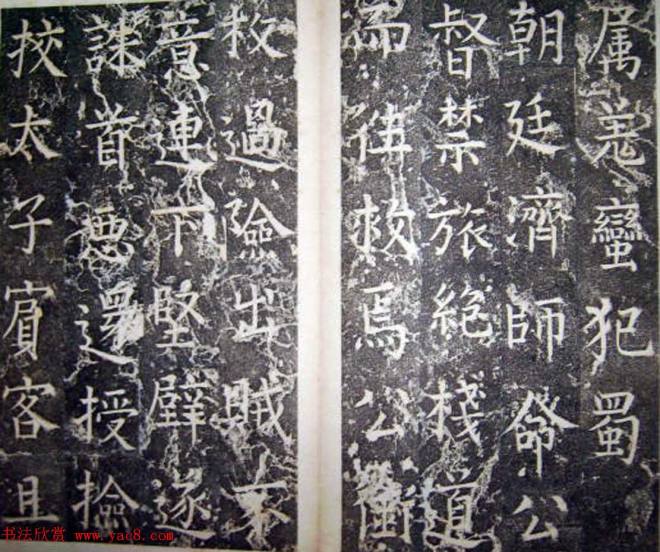 属羗蠻犯蜀
朝廷濟師命公
督禁旅絶棧道
而往救焉公銜
枚過險出賊不
意連下堅壁遂
誅首惡還授撿
挍太子賓客且
书法欣赏 www.yac8.com